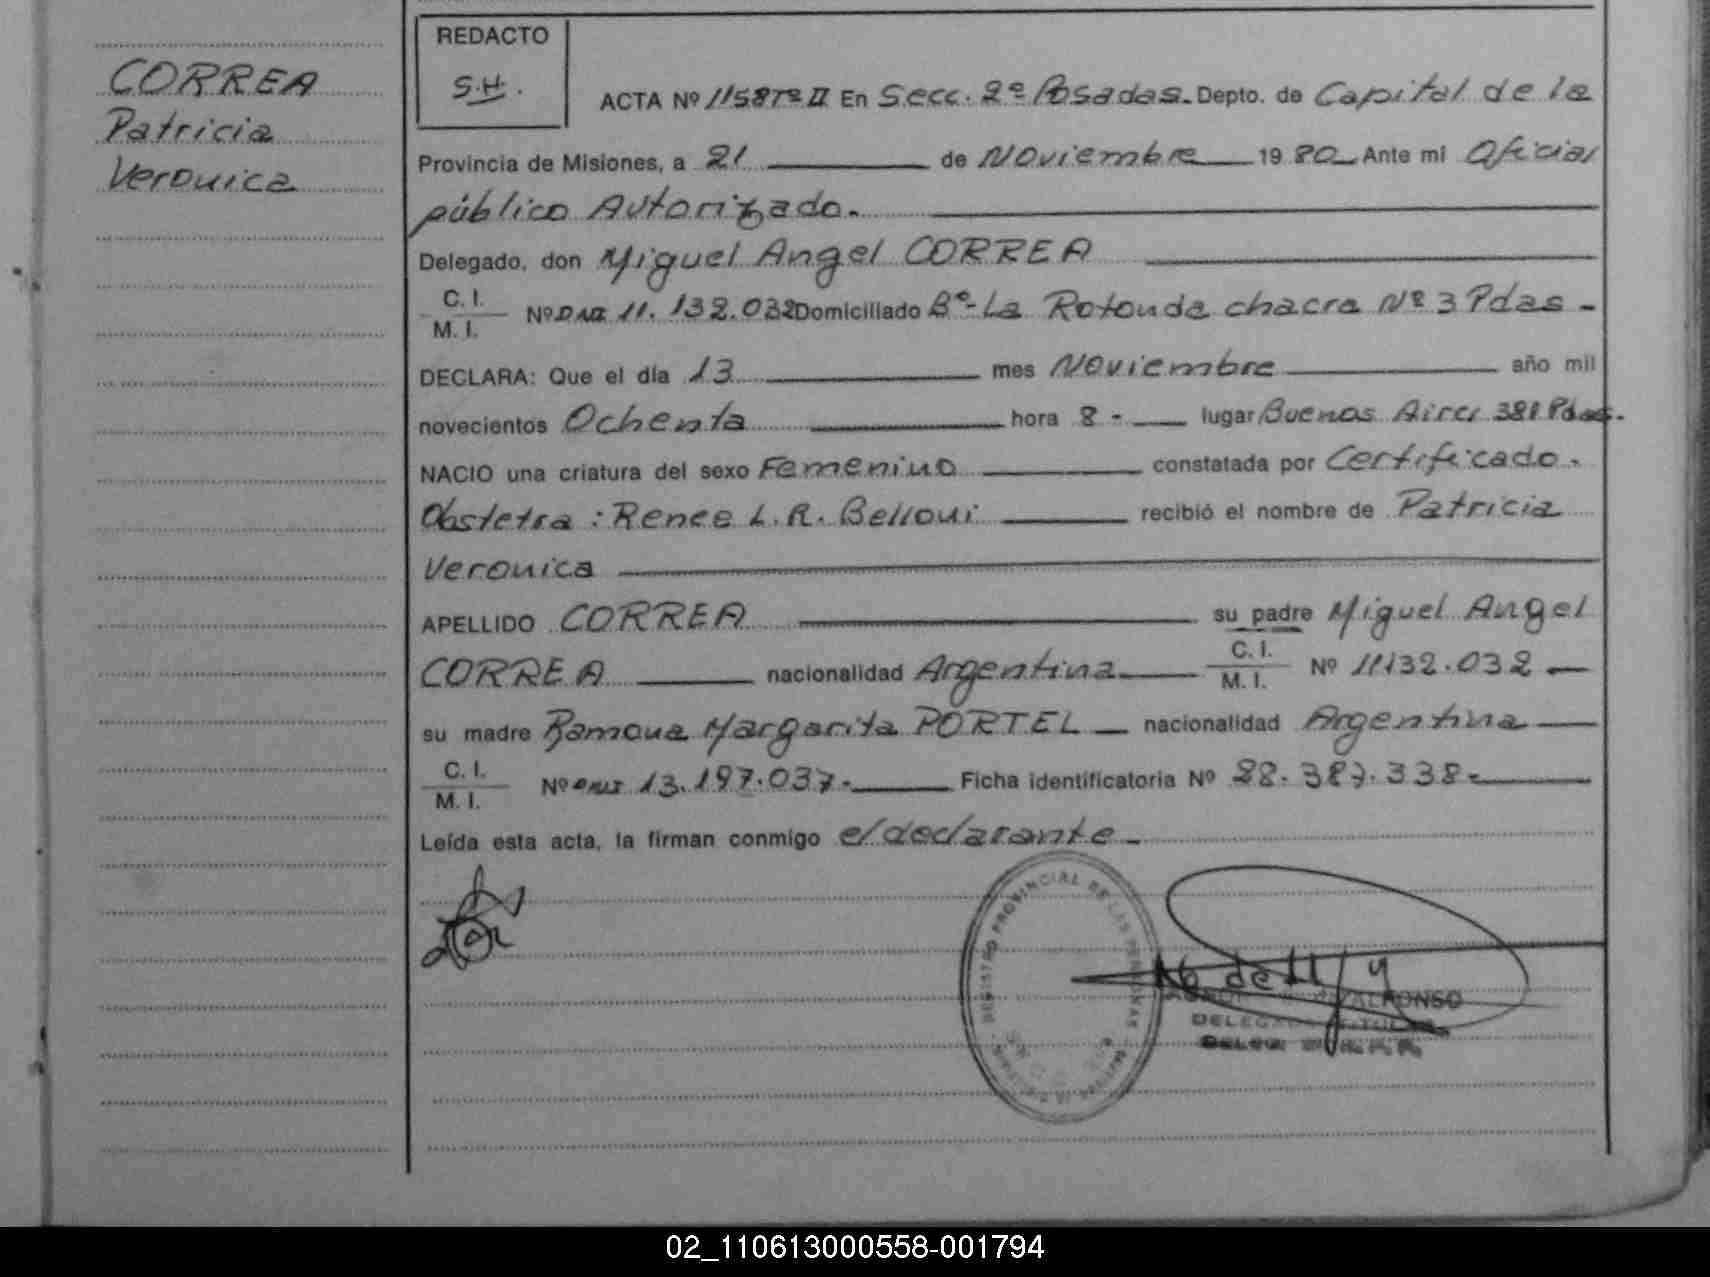 CORREA
Patricia
Veronica
REDACTO
S.H.
ACTA Nº 1158 Tº II En Secc. 2º Posadas. Depto. de Capital de la
Provincia de Misiones, a 21 de Noviembre 1980 Ante mi Oficial
público Autorizado.
Delegado, don Miguel Angel CORREA
C. I.
M. I. Nº DNI 11.132.032 Domiciliado Bº- La Rotonda chacra Nº 3 Pdas -
DECLARA: Que el día 13 mes Noviembre año mil
novecientos Ochenta hora 8 - lugar Buenos Aires 381 Pdas.
NACIO una criatura del sexo Femenino constatada por Certificado.
Obstetra: Renee L. R. Belloni recibió el nombre de Patricia
Veronica
APELLIDO CORREA su padre Miguel Angel
CORREA nacionalidad Argentina C. I.
M. I. Nº 11132.032
su madre Ramona Margarita PORTEL nacionalidad Argentina
C. I.
M. I. Nº DNI 13.197.037.- Ficha identificatoria Nº 28.387.338-
Leída esta acta, la firman conmigo el declarante -
REGISTRO PROVINCIAL DE LAS PERSONAS
ALFONSO
02_110613000558-001794